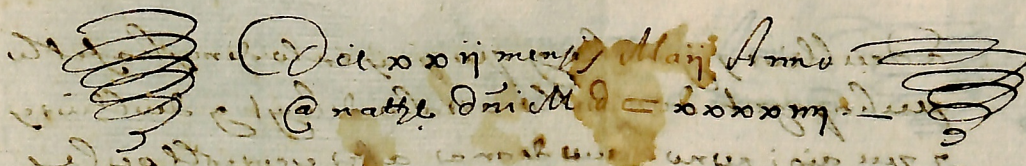 Die xxij mensis Maij Anno
@ nath^e dñi M d = xxxxiiij